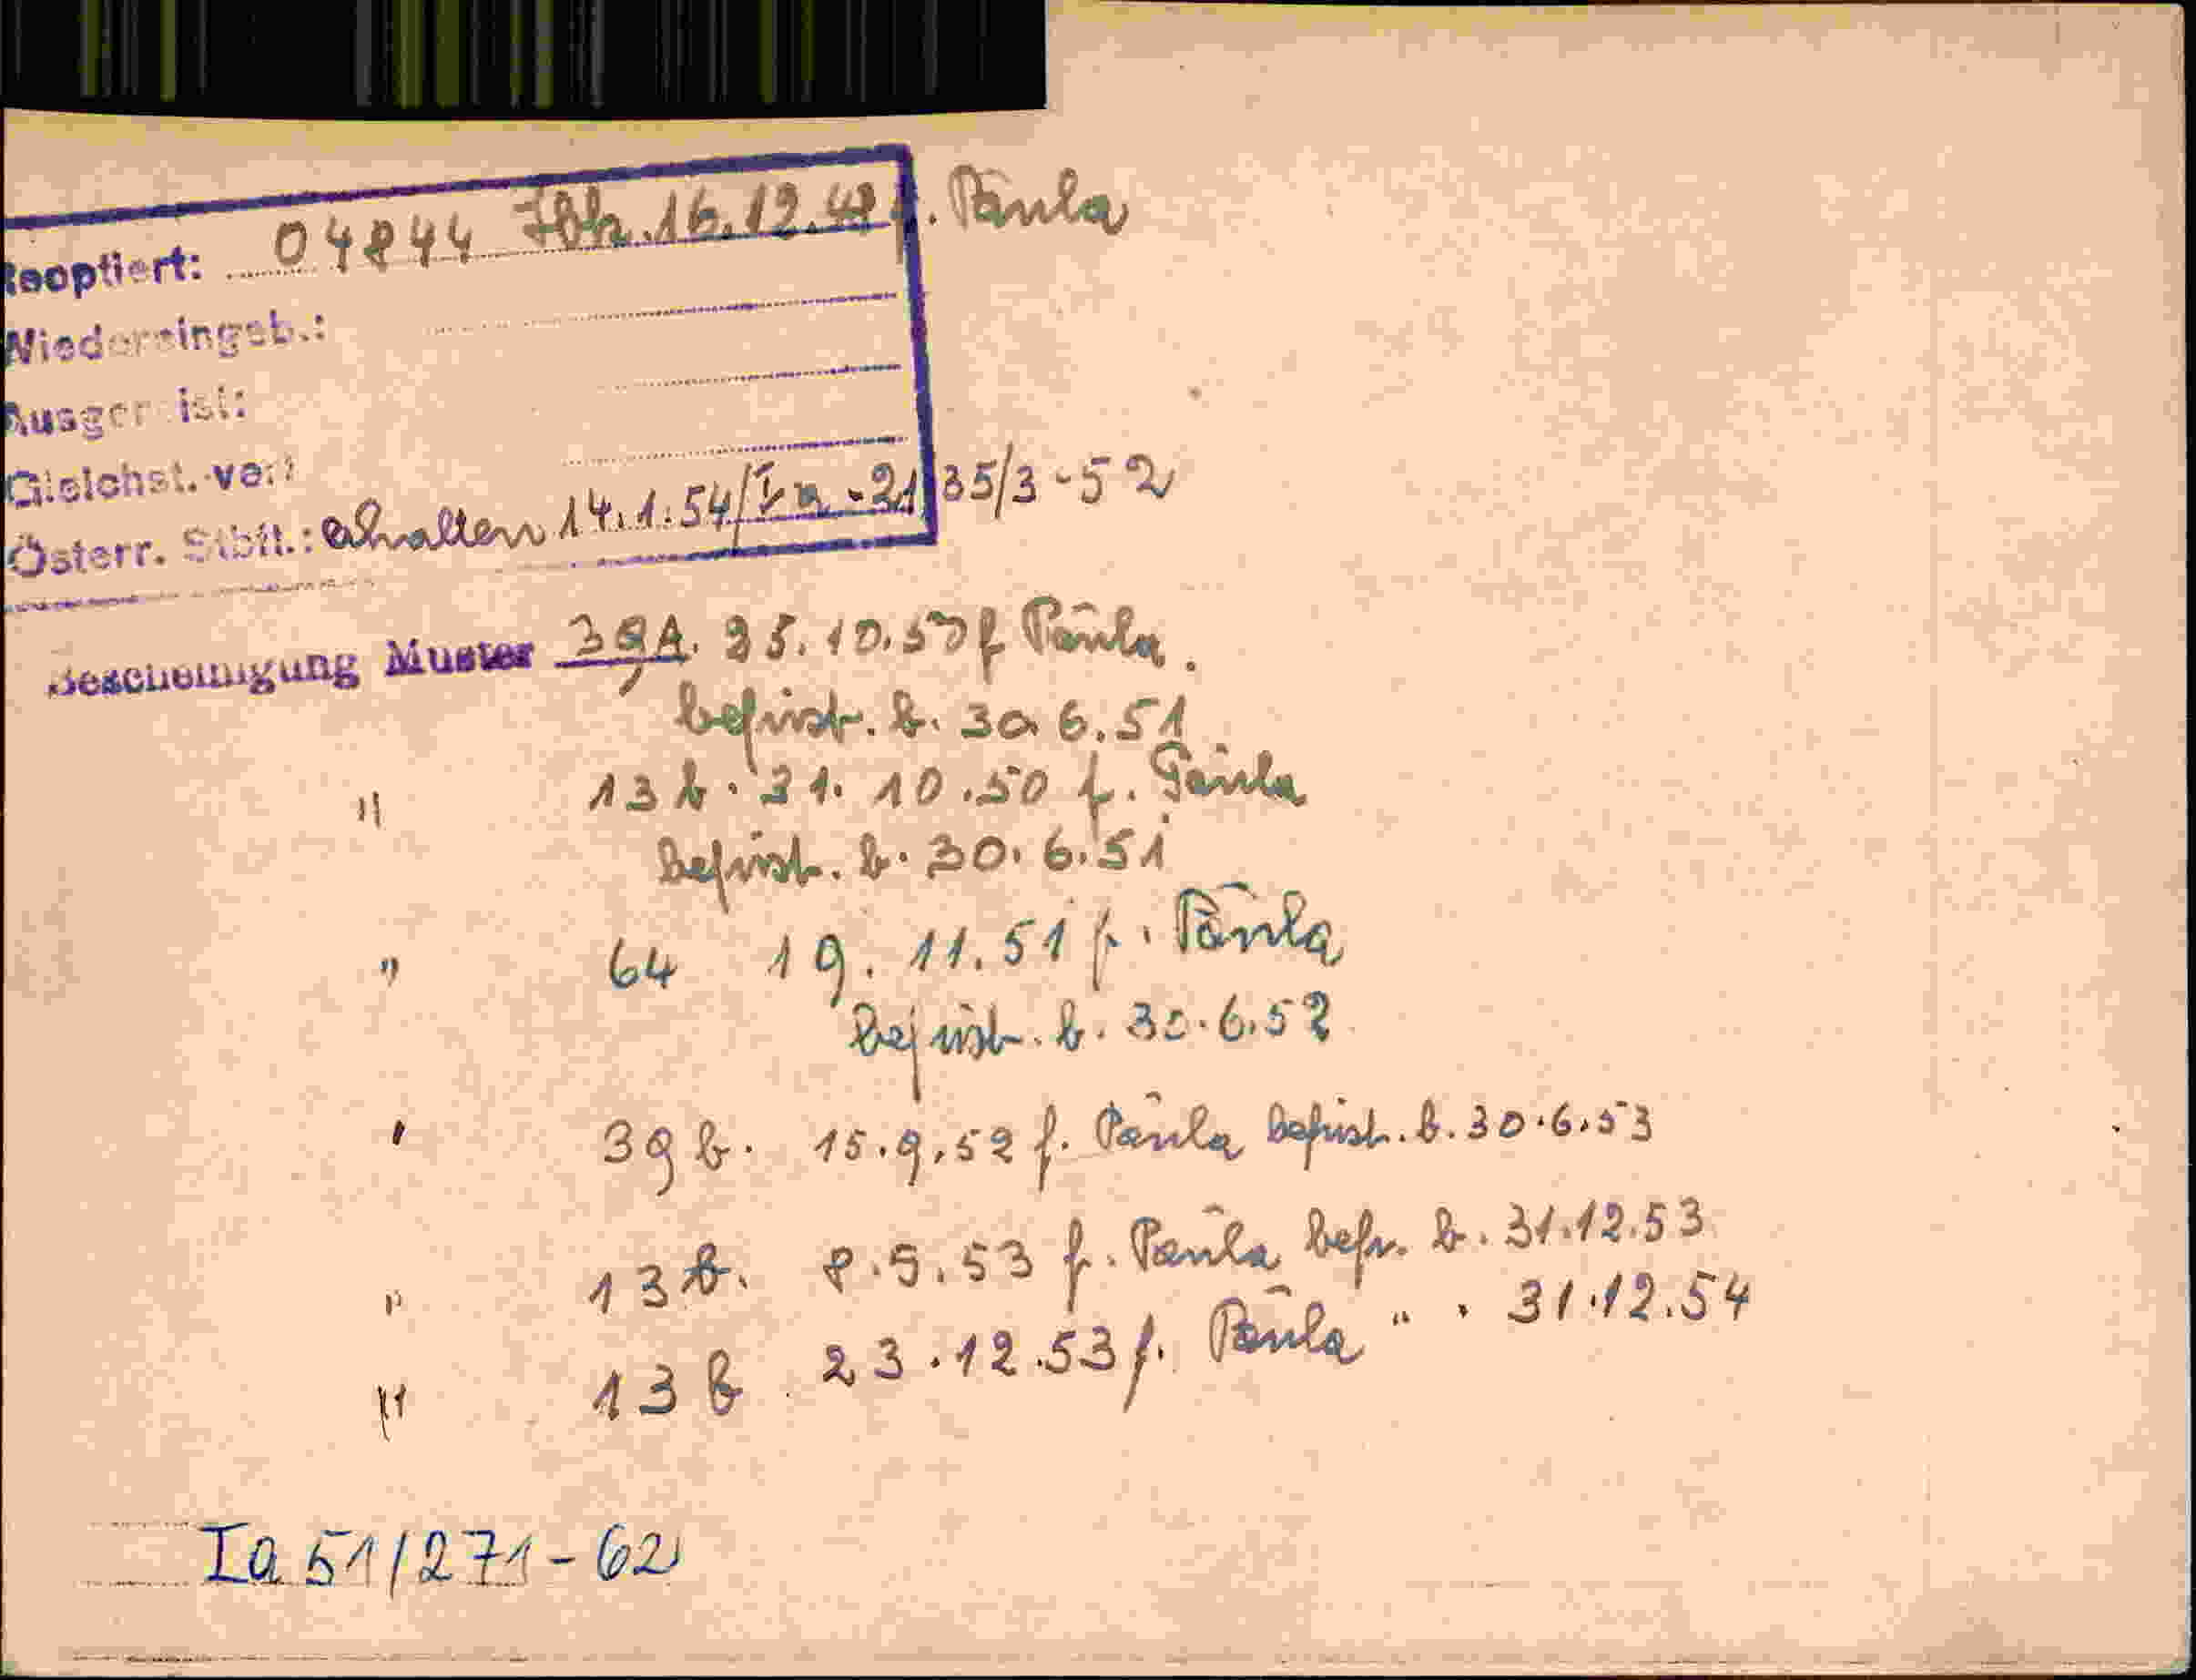 Reoptiert: 04844 Ibk. 16.12.48 f. Paula
Wiedereingeb.:
Ausger ist:
Gleichst. verl
Österr. Stbft.: erhalten 14.1.54/Ia-2135/3-52
Bescheinigung Muster 39A. 25.10.50 f Paula.
befrist. b. 30 6.51
" 13 b. 31. 10.50 f. Paula
befrist. b. 30.6.51
" 64 19. 11.51 f. Paula
befrist. b. 30.6.52
" 39 b. 15.9.52 f. Paula befrist. b. 30.6.53
" 13 b. 8.5.53 f. Paula befr. b. 31.12.53
" 13 b 23.12.53 f. Paula " " 31.12.54
Ia 51/271-62